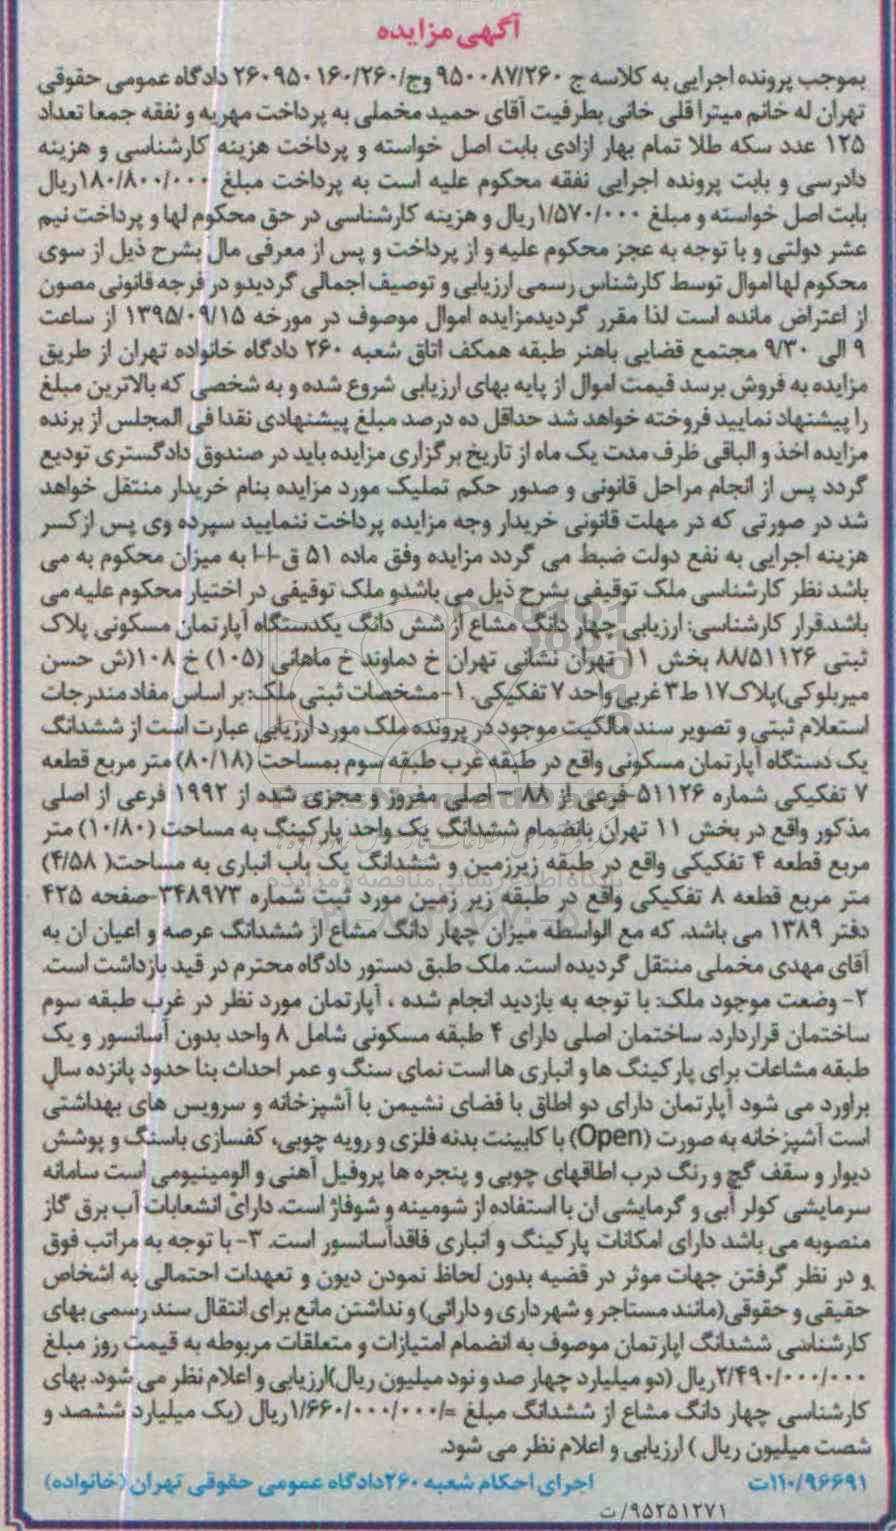 آگهی مزایده
بموجب پرونده اجرایی به کلاسه ج ۹۵۰۰۸۷/۲۶۰ وج/۲۶۰۹۵۰۱۶۰/۲۶۰ دادگاه عمومی حقوقی
تهران له خانم میترا قلی خانی بطرفیت آقای حمید مخملی به پرداخت مهریه و نفقه جمعا تعداد
۱۲۵ عدد سکه طلا تمام بهار ازادی بابت اصل خواسته و پرداخت هزینه کارشناسی و هزینه
دادرسی و بابت پرونده اجرایی نفقه محکوم علیه است به پرداخت مبلغ ۱۸۰/۸۰۰/۰۰۰ریال
بابت اصل خواسته و مبلغ ۱/۵۷۰/۰۰۰ریال و هزینه کارشناسی در حق محکوم لها و پرداخت نیم
عشر دولتی و با توجه به عجز محکوم علیه و از پرداخت و پس از معرفی مال بشرح ذیل از سوی
محکوم لها اموال توسط کارشناس رسمی ارزیابی و توصیف اجمالی گردیدو در فرجه قانونی مصون
از اعتراض مانده است لذا مقرر گردیدمزایده اموال موصوف در مورخه ۱۳۹۵/۰۹/۱۵ از ساعت
۹ الی ۹/۳۰ مجتمع قضایی باهنر طبقه همکف اتاق شعبه ۲۶۰ دادگاه خانواده تهران از طریق
مزایده به فروش برسد قیمت اموال از پایه بهای ارزیابی شروع شده و به شخصی که بالاترین مبلغ
را پیشنهاد نمایید فروخته خواهد شد حداقل ده درصد مبلغ پیشنهادی نقدا فی المجلس از برنده
مزایده اخذ و الباقی ظرف مدت یک ماه از تاریخ برگزاری مزایده باید در صندوق دادگستری تودیع
گردد پس از انجام مراحل قانونی و صدور حکم تملیک مورد مزایده بنام خریدار منتقل خواهد
شد در صورتی که در مهلت قانونی خریدار وجه مزایده پرداخت ننمایید سپرده وی پس ازکسر
هزینه اجرایی به نفع دولت ضبط می گردد مزایده وفق ماده ۵۱ ق-ا-ا به میزان محکوم به می
باشد نظر کارشناسی ملک توقیفی بشرح ذیل می باشدو ملک توقیفی در اختیار محکوم علیه می
باشد.قرار کارشناسی: ارزیابی چهار دانگ مشاع از شش دانگ یکدستگاه آپارتمان مسکونی پلاک
ثبتی ۸۸/۵۱۱۲۶ بخش ۱۱ تهران نشانی تهران خ دماوند خ ماهانی (۱۰۵) خ ۱۰۸(ش حسن
میربلوکی)پلاک۱۷ ط۳ غربی واحد ۷ تفکیکی. ۱-مشخصات ثبتی ملک:بر اساس مفاد مندرجات
استعلام ثبتی و تصویر سند مالکیت موجود در پرونده ملک مورد ارزیابی عبارت است از ششدانگ
یک دستگاه آپارتمان مسکونی واقع در طبقه غرب طبقه سوم بمساحت (۸۰/۱۸) متر مربع قطعه
۷ تفکیکی شماره ۵۱۱۲۶-فرعی از ۸۸ – اصلی مفروز و مجزی شده از ۱۹۹۲ فرعی از اصلی
مذکور واقع در بخش ۱۱ تهران بانضمام ششدانگ یک واحد پارکینگ به مساحت (۱۰/۸۰) متر
مربع قطعه ۴ تفکیکی واقع در طبقه زیرزمین و ششدانگ یک باب انباری به مساحت( ۴/۵۸)
متر مربع قطعه ۸ تفکیکی واقع در طبقه زیر زمین مورد ثبت شماره ۳۴۸۹۷۳-صفحه ۴۲۵
دفتر ۱۳۸۹ می باشد. که مع الواسطه میزان چهار دانگ مشاع از ششدانگ عرصه و اعیان ان به
آقای مهدی مخملی منتقل گردیده است. ملک طبق دستور دادگاه محترم در قید بازداشت است.
۲- وضعت موجود ملک: با توجه به بازدید انجام شده ، آپارتمان مورد نظر در غرب طبقه سوم
ساختمان قراردارد. ساختمان اصلی دارای ۴ طبقه مسکونی شامل ۸ واحد بدون آسانسور و یک
طبقه مشاعات برای پارکینگ ها و انباری ها است نمای سنگ و عمر احداث بنا حدود پانزده سال
براورد می شود آپارتمان دارای دو اطاق با فضای نشیمن با آشپزخانه و سرویس های بهداشتی
است آشپزخانه به صورت (Open) با کابینت بدنه فلزی و رویه چوبی، کفسازی باسنگ و پوشش
دیوار و سقف گچ و رنگ درب اطاقهای چوبی و پنجره ها پروفیل آهنی و الومینیومی است سامانه
سرمایشی کولر آبی و گرمایشی ان با استفاده از شومینه و شوفاژ است. دارای انشعابات آب برق گاز
منصوبه می باشد دارای امکانات پارکینگ و انباری فاقدآسانسور است. ۳- با توجه به مراتب فوق
و در نظر گرفتن جهات موثر در قضیه بدون لحاظ نمودن دیون و تعهدات احتمالی به اشخاص
حقیقی و حقوقی(مانند مستاجر و شهرداری و دارائی) و نداشتن مانع برای انتقال سند رسمی بهای
کارشناسی ششدانگ اپارتمان موصوف به انضمام امتیازات و متعلقات مربوطه به قیمت روز مبلغ
۲/۴۹۰/۰۰۰/۰۰۰ریال (دو میلیارد چهار صد و نود میلیون ریال)ارزیابی و اعلام نظر می شود. بهای
کارشناسی چهار دانگ مشاع از ششدانگ مبلغ =/۱/۶۶۰/۰۰۰/۰۰۰ریال (یک میلیارد ششصد و
شصت میلیون ریال ) ارزیابی و اعلام نظر می شود.
۱۱۰/۹۶۶۹۱ت اجرای احکام شعبه ۲۶۰دادگاه عمومی حقوقی تهران (خانواده)
۹۵۲۵۱۲۷۱/ ت